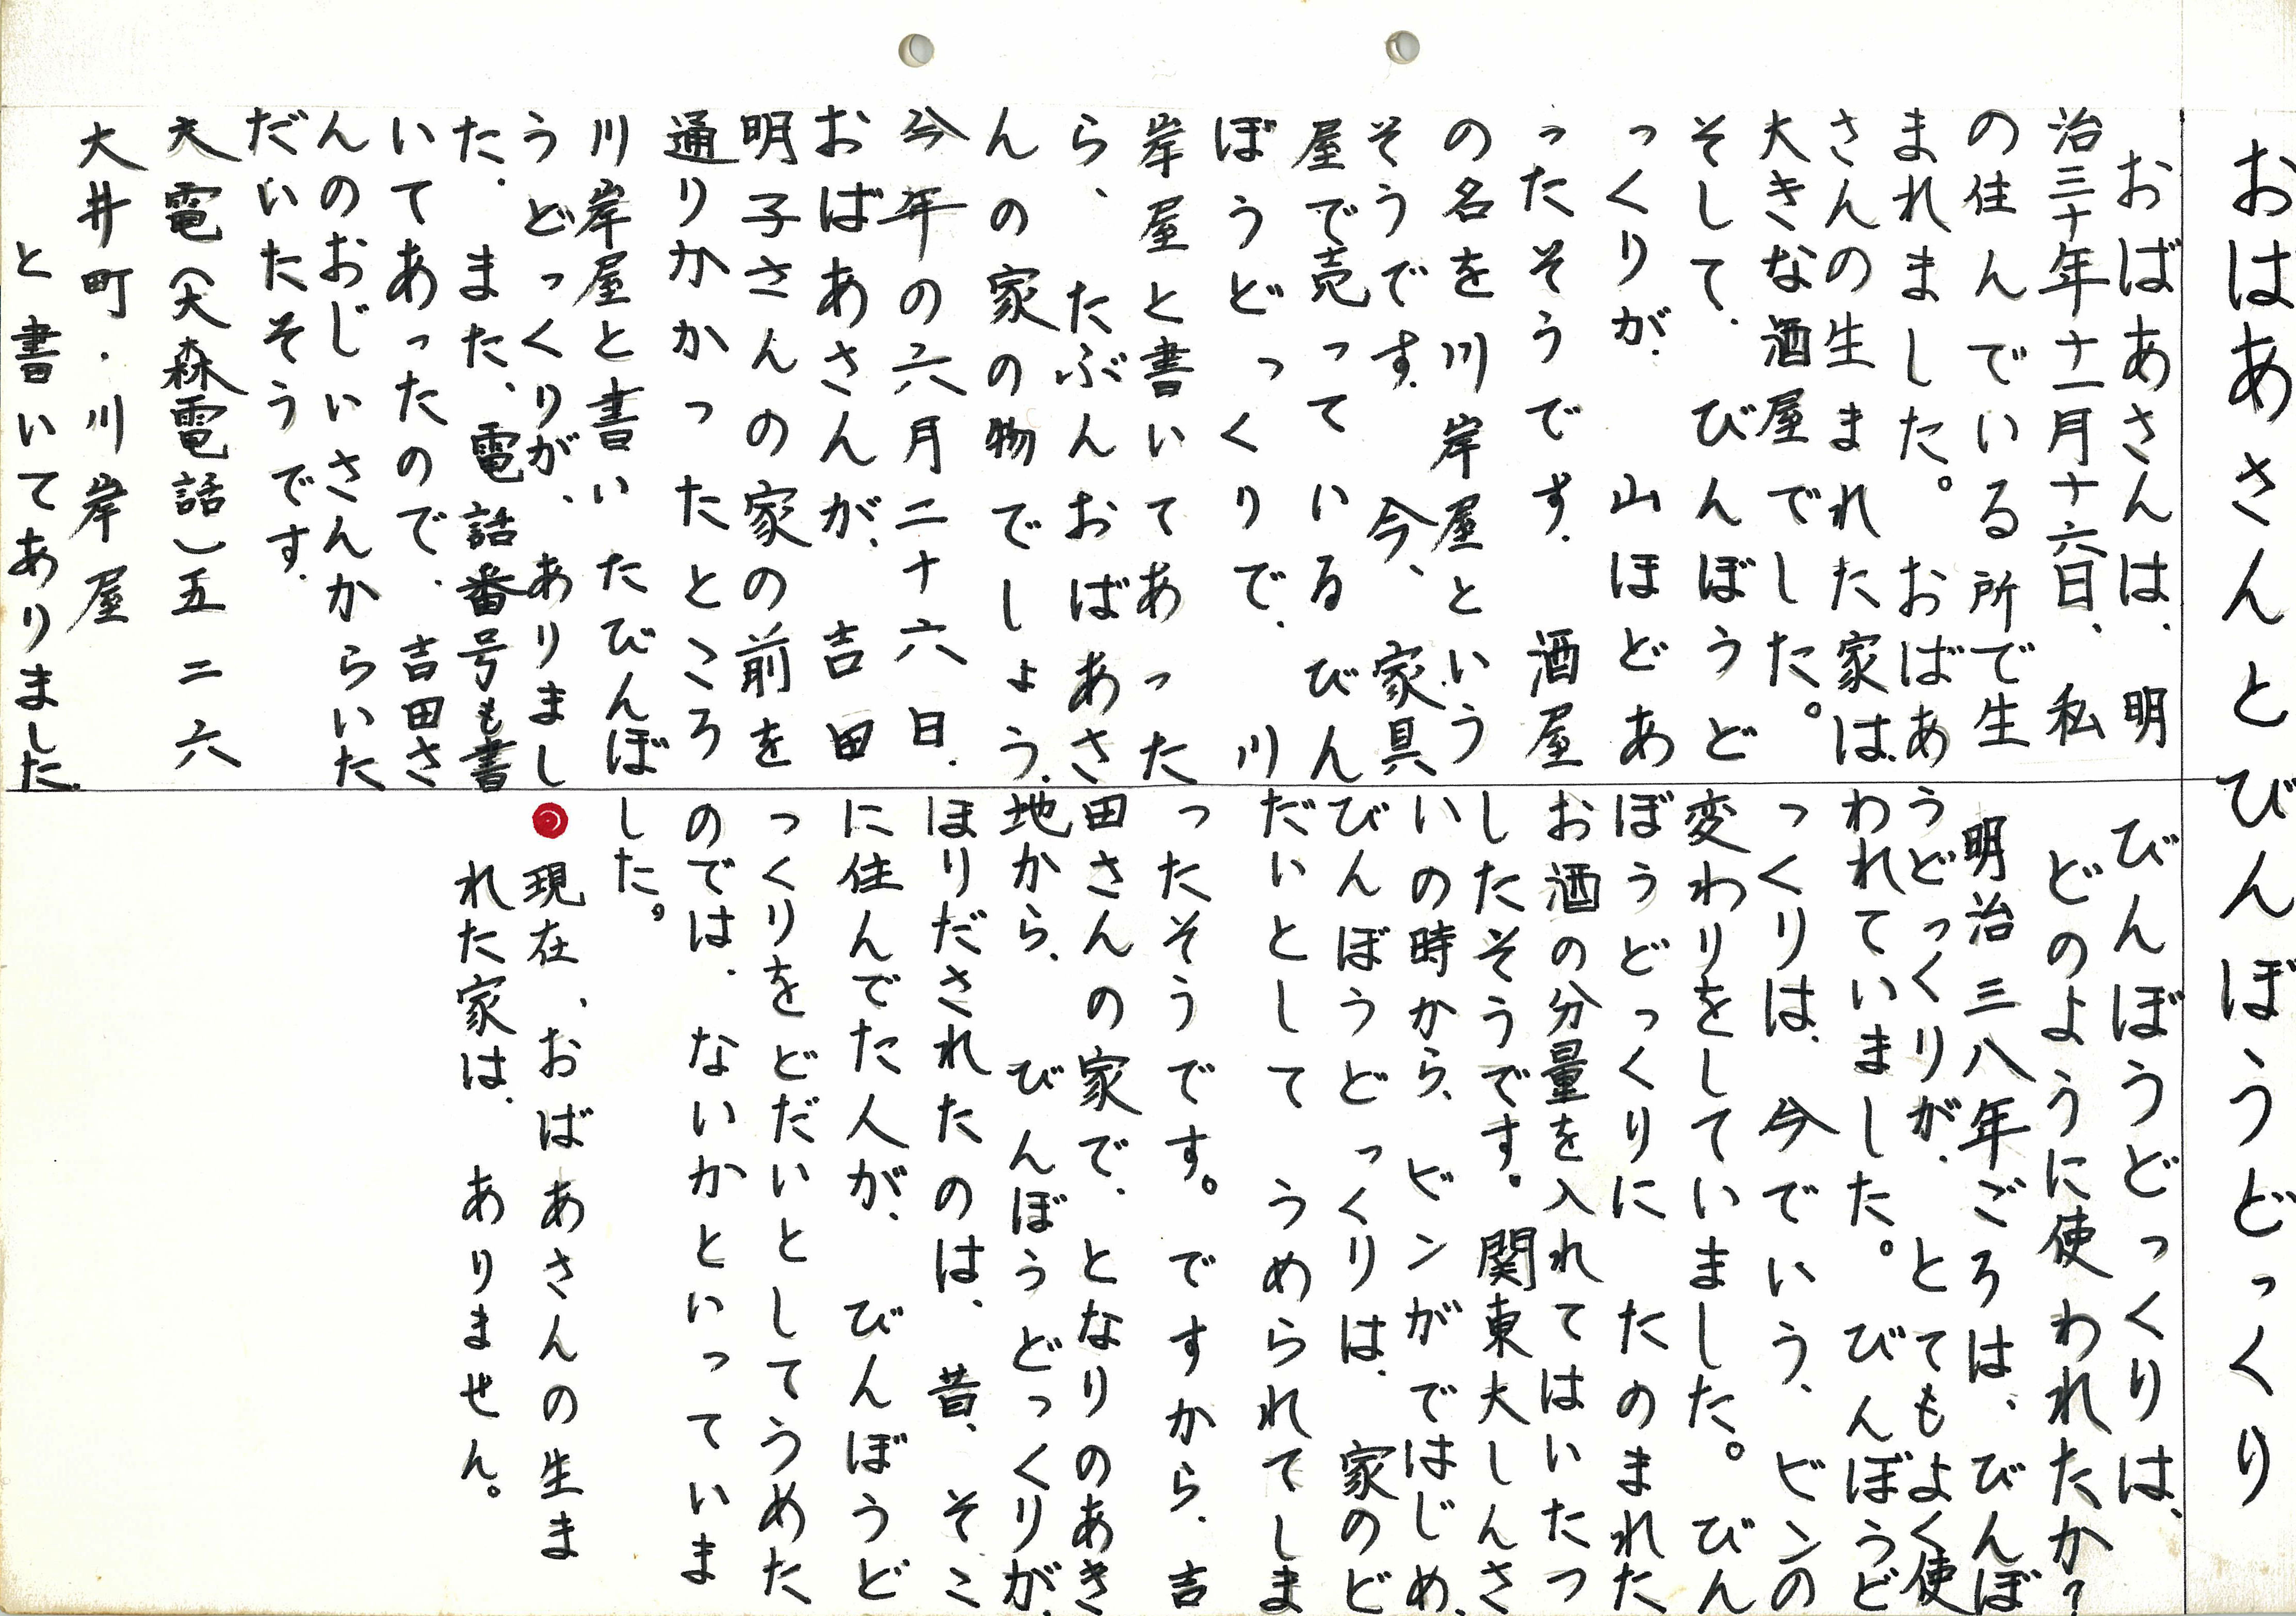 おはあさんとびんぼうどっくり
おばあさんは、明
治三十年十一月十六日、私
の住んでいる所で生
まれました。おばあ
さんの生まれた家は、
大きな酒屋でした。
そして、びんぼうど
っくりが、山ほどあ
ったそうです。酒屋
の名を川岸屋という
そうです。今、家具
屋で売っているびん
ぼうどっくりで、川
岸屋と書いてあった
ら、たぶんおばあさ
んの家の物でしょう。
今年の六月二十六日、
おばあさんが、吉田
明子さんの家の前を
通りかかったところ
川岸屋と書いたびんぼ
うどっくりが、ありまし
た。また、電話番号も書
いてあったので、吉田さ
んのおじいさんからいた
だいたそうです。
大電(大森電話)五二六
大井町・川岸屋
と書いてありました。
びんぼうどっくりは、
どのように使われたか?
明治三八年ごろは、びんぼ
うどっくりが、とてもよく使
われていました。びんぼうど
っくりは、今でいう、ビンの
変わりをしていました。びん
ぼうどっくりに、たのまれた
お酒の分量を入れてはいたつ
したそうです。関東大しんさ
いの時から、ビンがではじめ、
びんぼうどっくりは、家のど
だいとしてうめられてしま
ったそうです。ですから、吉
田さんの家で、となりのあき
地から、びんぼうどっくりが、
ほりだされたのは、昔、そこ
に住んでた人が、びんぼうど
っくりをどだいとしてうめた
のでは、ないかといっていま
した。
◎現在、おばあさんの生ま
れた家は、ありません。